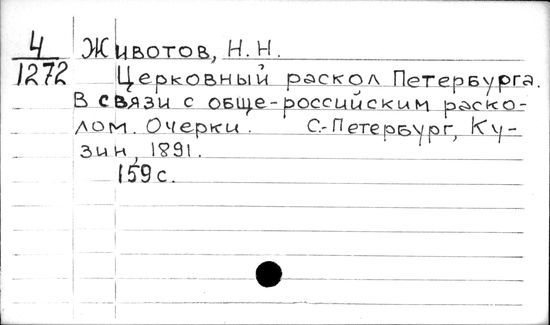 4 Животов, Н.Н.
1272 Церковный раскол Петербурга.
В связи с обще-российским раско-
лом. Очерки. С.-Петербург, Ку-
зин, 1891.
159 с.